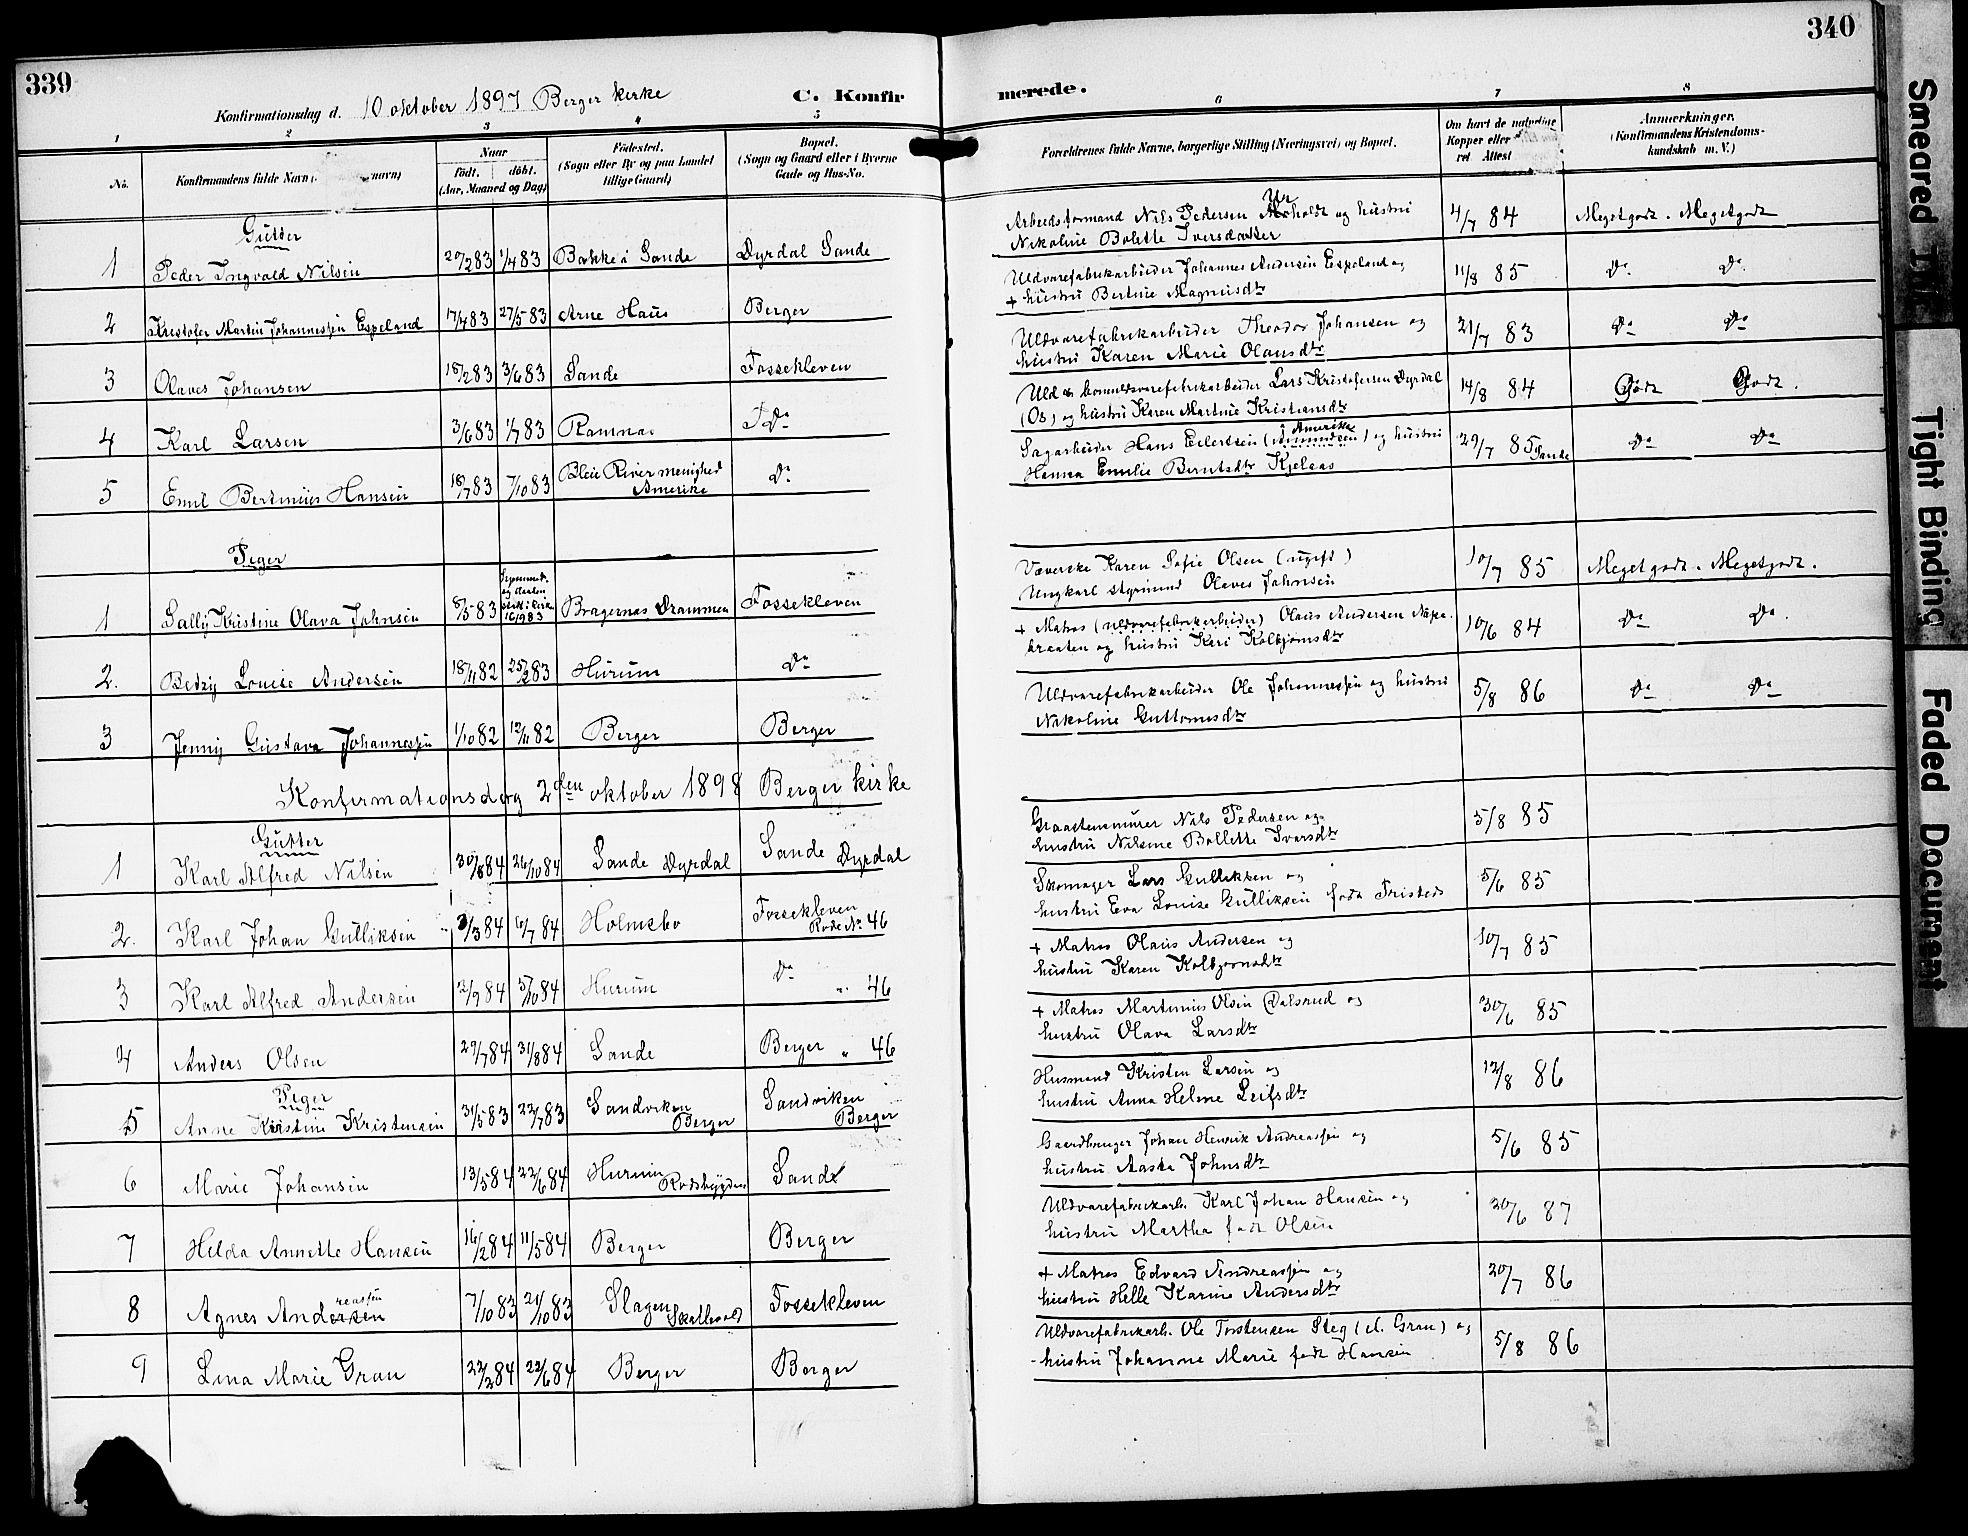 339
340
Konfirmationsdag d. 10 oktober 1897 Berger kirke
C. Konfirmerede.
1 2 3 4 5 6 7 8
No. Konfirmandens fulde Navn
Naar født. døbt. (Aar, Maaned og Dag)
Fødested. (Sogn eller By og paa Landet tillige Gaard)
Bopæl. (Sogn og Gaard eller i Byerne Gade og Hus-No.
Forældrenes fulde Navne, borgerlige Stilling (Næringsvei) og Bopæl.
Om havt de naturlige Kopper eller ret Attest
Anmærkninger. (Konfirmandens Kristendoms-kundskab m. V.)
Gutter
1 Peder Ingvald Nilsen 20/2 83 1/4 83 Bakke i Sande Dyrdal Sande Arbeidsformand Nils Pedersen og hustru Nikoline Bolette Iversdatter 4/7 84 Megetgodt. Megetgodt
2 Kristofer Martin Johannessen Espeland 17/4 83 27/5 83 Arne Haus Berger Uldvarefabrikarbeider Johannes Andersen Espeland og + hustru Bertine Magnusdtr 11/8 85 Do. Do.
3 Olaves Johansen 18/2 83 3/6 83 Sande Fossekleven Uldvarefabrikarbeider Theodor Johansen og hustru Karen Marie Olausdtr 21/7 83 Do Do
4 Karl Larsen 3/6 83 1/7 83 Ramnæs Do Uld & bomuldsvarefabrikarbeider Lars Kristofersen Dyrdal (Os) og hustru Karen Martine Kristiansdtr 14/8 84 Godt Godt.
5 Emil Bertinius Hansen 18/7 83 7/10 83 Blue River menighed Amerika Do Sagarbeider Hans Eilertsen (i Amerika) og hustru Hanna Emilie Berntsdtr Kjelaas 29/7 85 Sande Do Do
Piger
1 Sally Kristine Olava Johnsen 8/5 83 Hjemmed. og daaben stadf. i kirken 16/9 83 Bragernæs Drammen Fossekleven Væverske Karen Sofie Olsen (ugift) Ungkarl styrmand Olaves Johnsen 10/7 85 Megetgodt. Megetgodt.
2. Betzy Louise Andersen 18/11 82 25/2 83 Hurum Do + Matros (uldvarefabrikarbeider) Olaus Andersen Næpebraaten og hustru Kari Kolbjørnsdtr 10/6 84 Do Do.
3 Jenny Gustava Johannessen 1/10 82 12/11 82 Berger Berger Uldvarefabrikarbeider Ole Johannessen og hustru Nikoline Guttormsdtr 5/8 86 Do Do
Konfirmationsdag 2den oktober 1898 Berger kirke
Gutter
1 Karl Alfred Nilsen 30/8 84 26/10 84 Sande Dyrdal Sande Dyrdal Graastensmurer Nils Pedersen og hustru Nilsine Bollette Ivarsdtr 5/8 85
2. Karl Johan Gulliksen 3/3 84 6/7 84 Holmsbo Fossekleven Rode No 46 Skomager Lars Gulliksen og hustru Eva Louise Gulliksen født Tristeds 5/6 85
3 Karl Alfred Andersen 12/9 84 5/10 84 Hurum Do " 46 + Matros Olaus Andersen og hustru Karen Kolbjørnsdtr 10/7 85
4 Anders Olsen 29/7 84 31/8 84 Sande Berger " 46 + Matros Martinius Olsen Dalsrud og hustru Olava Larsdtr 30/6 85
Piger
5 Anne Kirstine Kristensen 31/5 83 22/7 83 Sandviken Berger Sandviken Berger Husmand Kristen Larsen og hustru Anna Helene Leifsdtr 12/8 86
6 Marie Johansen 13/5 84 22/6 84 Hurum Rødsbygden Sande Gaardbruger Johan Henrik Andreassen og hustru Aasta Johnsdtr 5/6 85
7 Hilda Annette Hansen 16/2 84 11/5 84 Berger Berger Uldvarefabrikarb. Karl Johan Hansen og hustru Martha født Olsen 30/6 87
8 Agnes Andersen reassen 7/10 83 21/10 83 Slagen Skallevold Fossekleven + Matros Edvard Andreassen og hustru Helle Karine Andersdtr 20/7 86
9 Lina Marie Gran 22/2 84 22/6 84 Berger Berger Uldvarefabrikarb. Ole Torstensen Steg (el. Gran) og hustru Johanne Marie født Hansen 5/8 86
Smeared Ink
Tight Binding
Faded Document